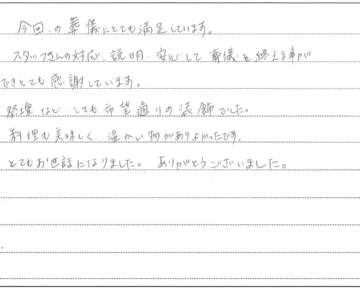 今回の葬儀にとても満足しています。
スタッフさんの対応、説明、安心して葬儀を終える事が
できとても感謝しています。
祭壇など、とても希望通りの装飾でした。
料理も美味しく、温かい物がありよかったです。
とてもお世話になりました。ありがとうございました。